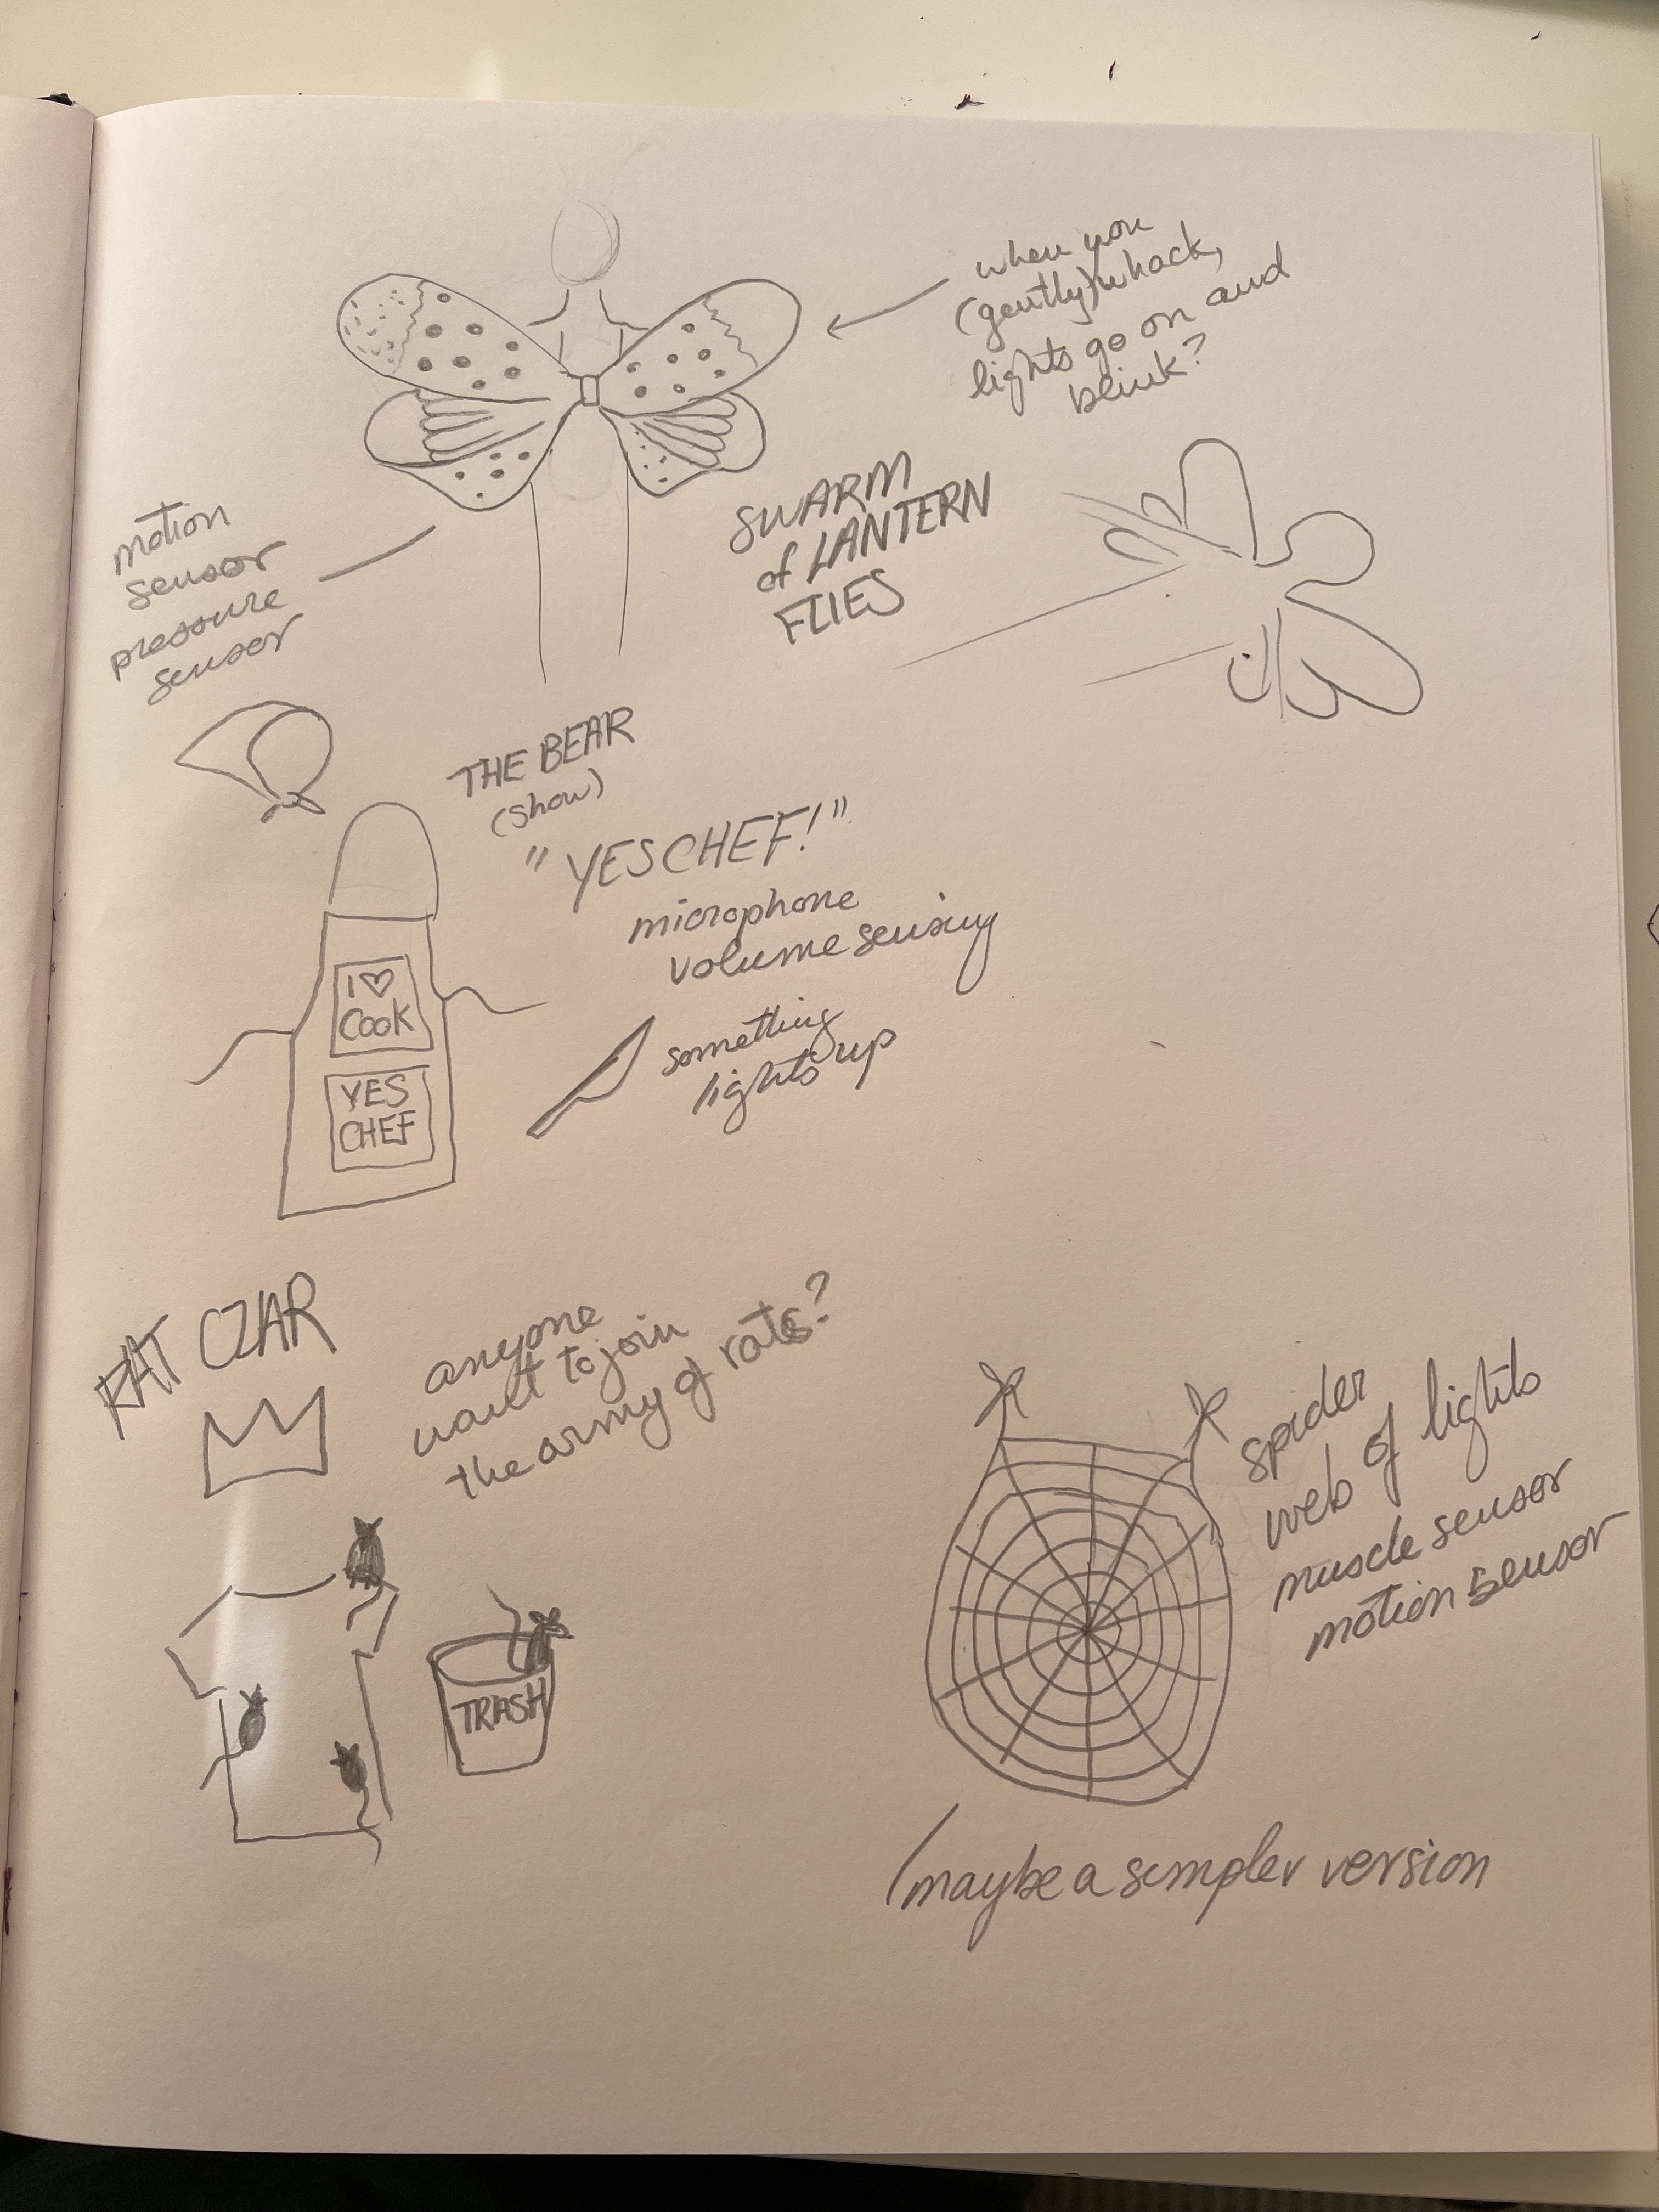 when you
(gently) whack,
lights go on and
blink?
SWARM
of LANTERN
FLIES
motion
sensor
pressure
sensor
THE BEAR
(show)
"YES CHEF!"
microphone
volume sensing
something
lights up
I ♡
Cook
YES
CHEF
RAT CZAR
anyone
want to join
the army of rats?
TRASH
spider
web of lights
muscle sensor
motion sensor
/maybe a simpler version